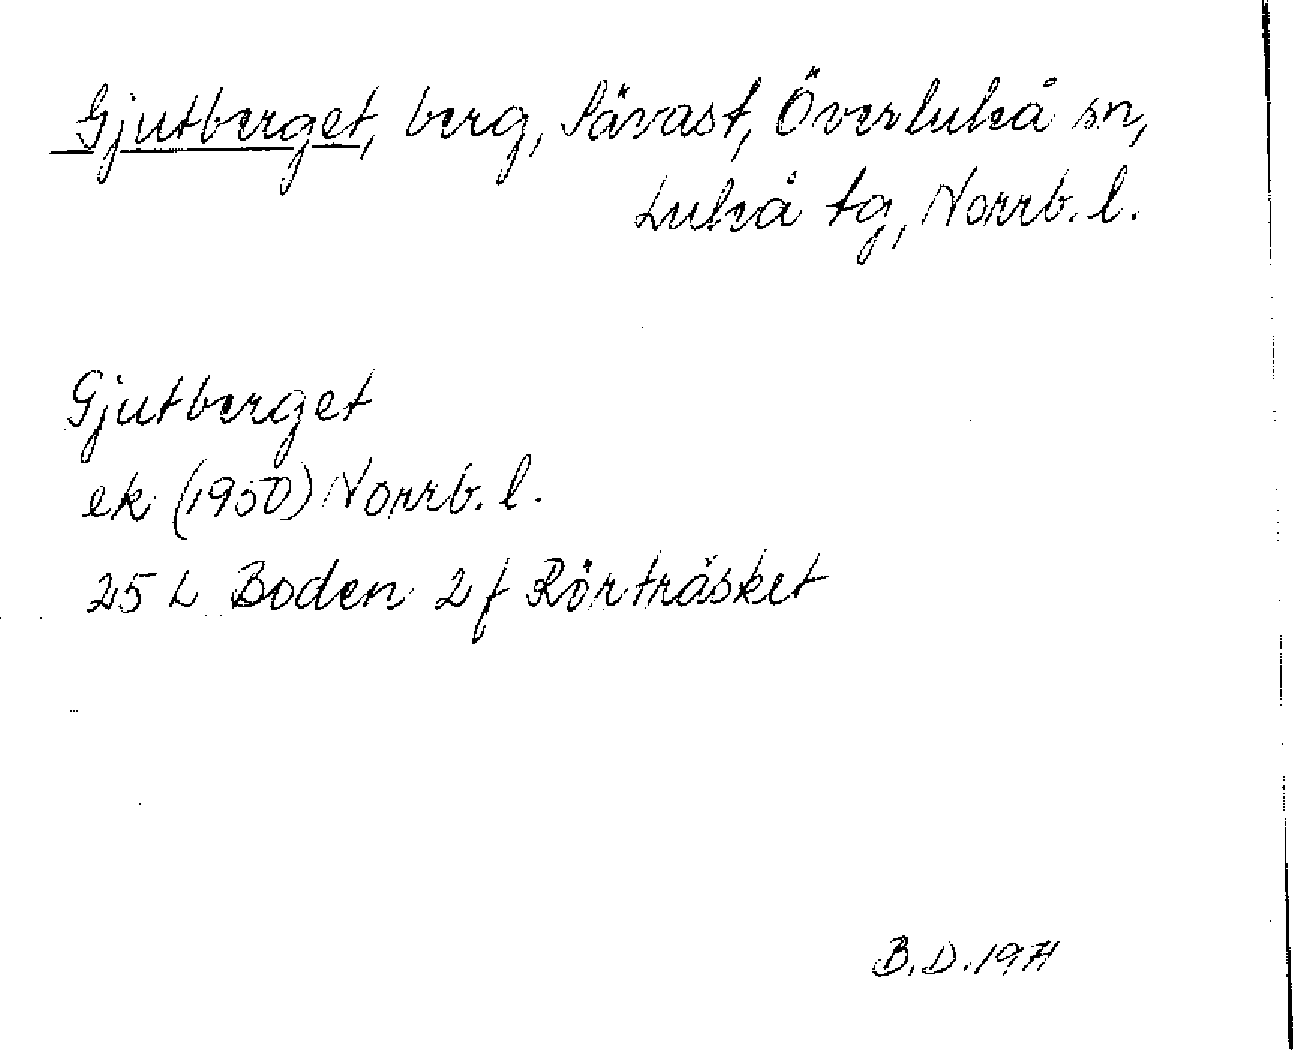 Gjutberget, berg, Sävast, Överluleå sn,
Luleå tg, Norrb. l.
Gjutberget
ek (1950) Norrb. l.
25 L Boden 2 f Rörträsket
B. D. 1971